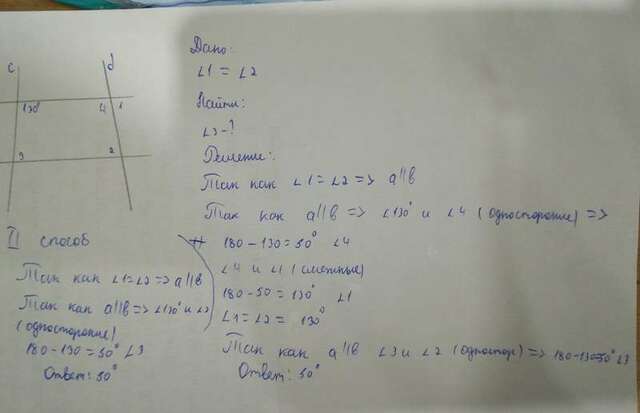 c d
130° 4 1
3 2
Дано:
∠1 = ∠2
Найти:
∠3 - ?
Решение:
Так как ∠1 = ∠2 => a||b
Так как a||b => ∠130° и ∠4 (одностороние) =>
180 - 130 = 50° ∠4
∠4 и ∠1 (смежные)
180 - 50 = 130° ∠1
∠1 = ∠2 = 130°
Так как a||b ∠3 и ∠2 (одностор) => 180-130=50° ∠3
Ответ: 50°
II способ
Так как ∠1=∠2 => a||b
Так как a||b => ∠130° и ∠2
(односторогие)
180 - 130 = 50° ∠3
Ответ: 50°